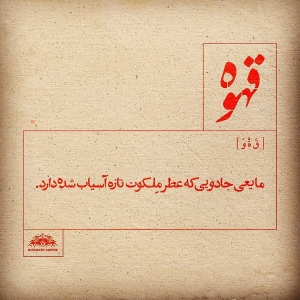 قهوه
[ قَ هْ وِ ]
مایعی جادویی که عطر ملکوت تازه آسیاب شده دارد.